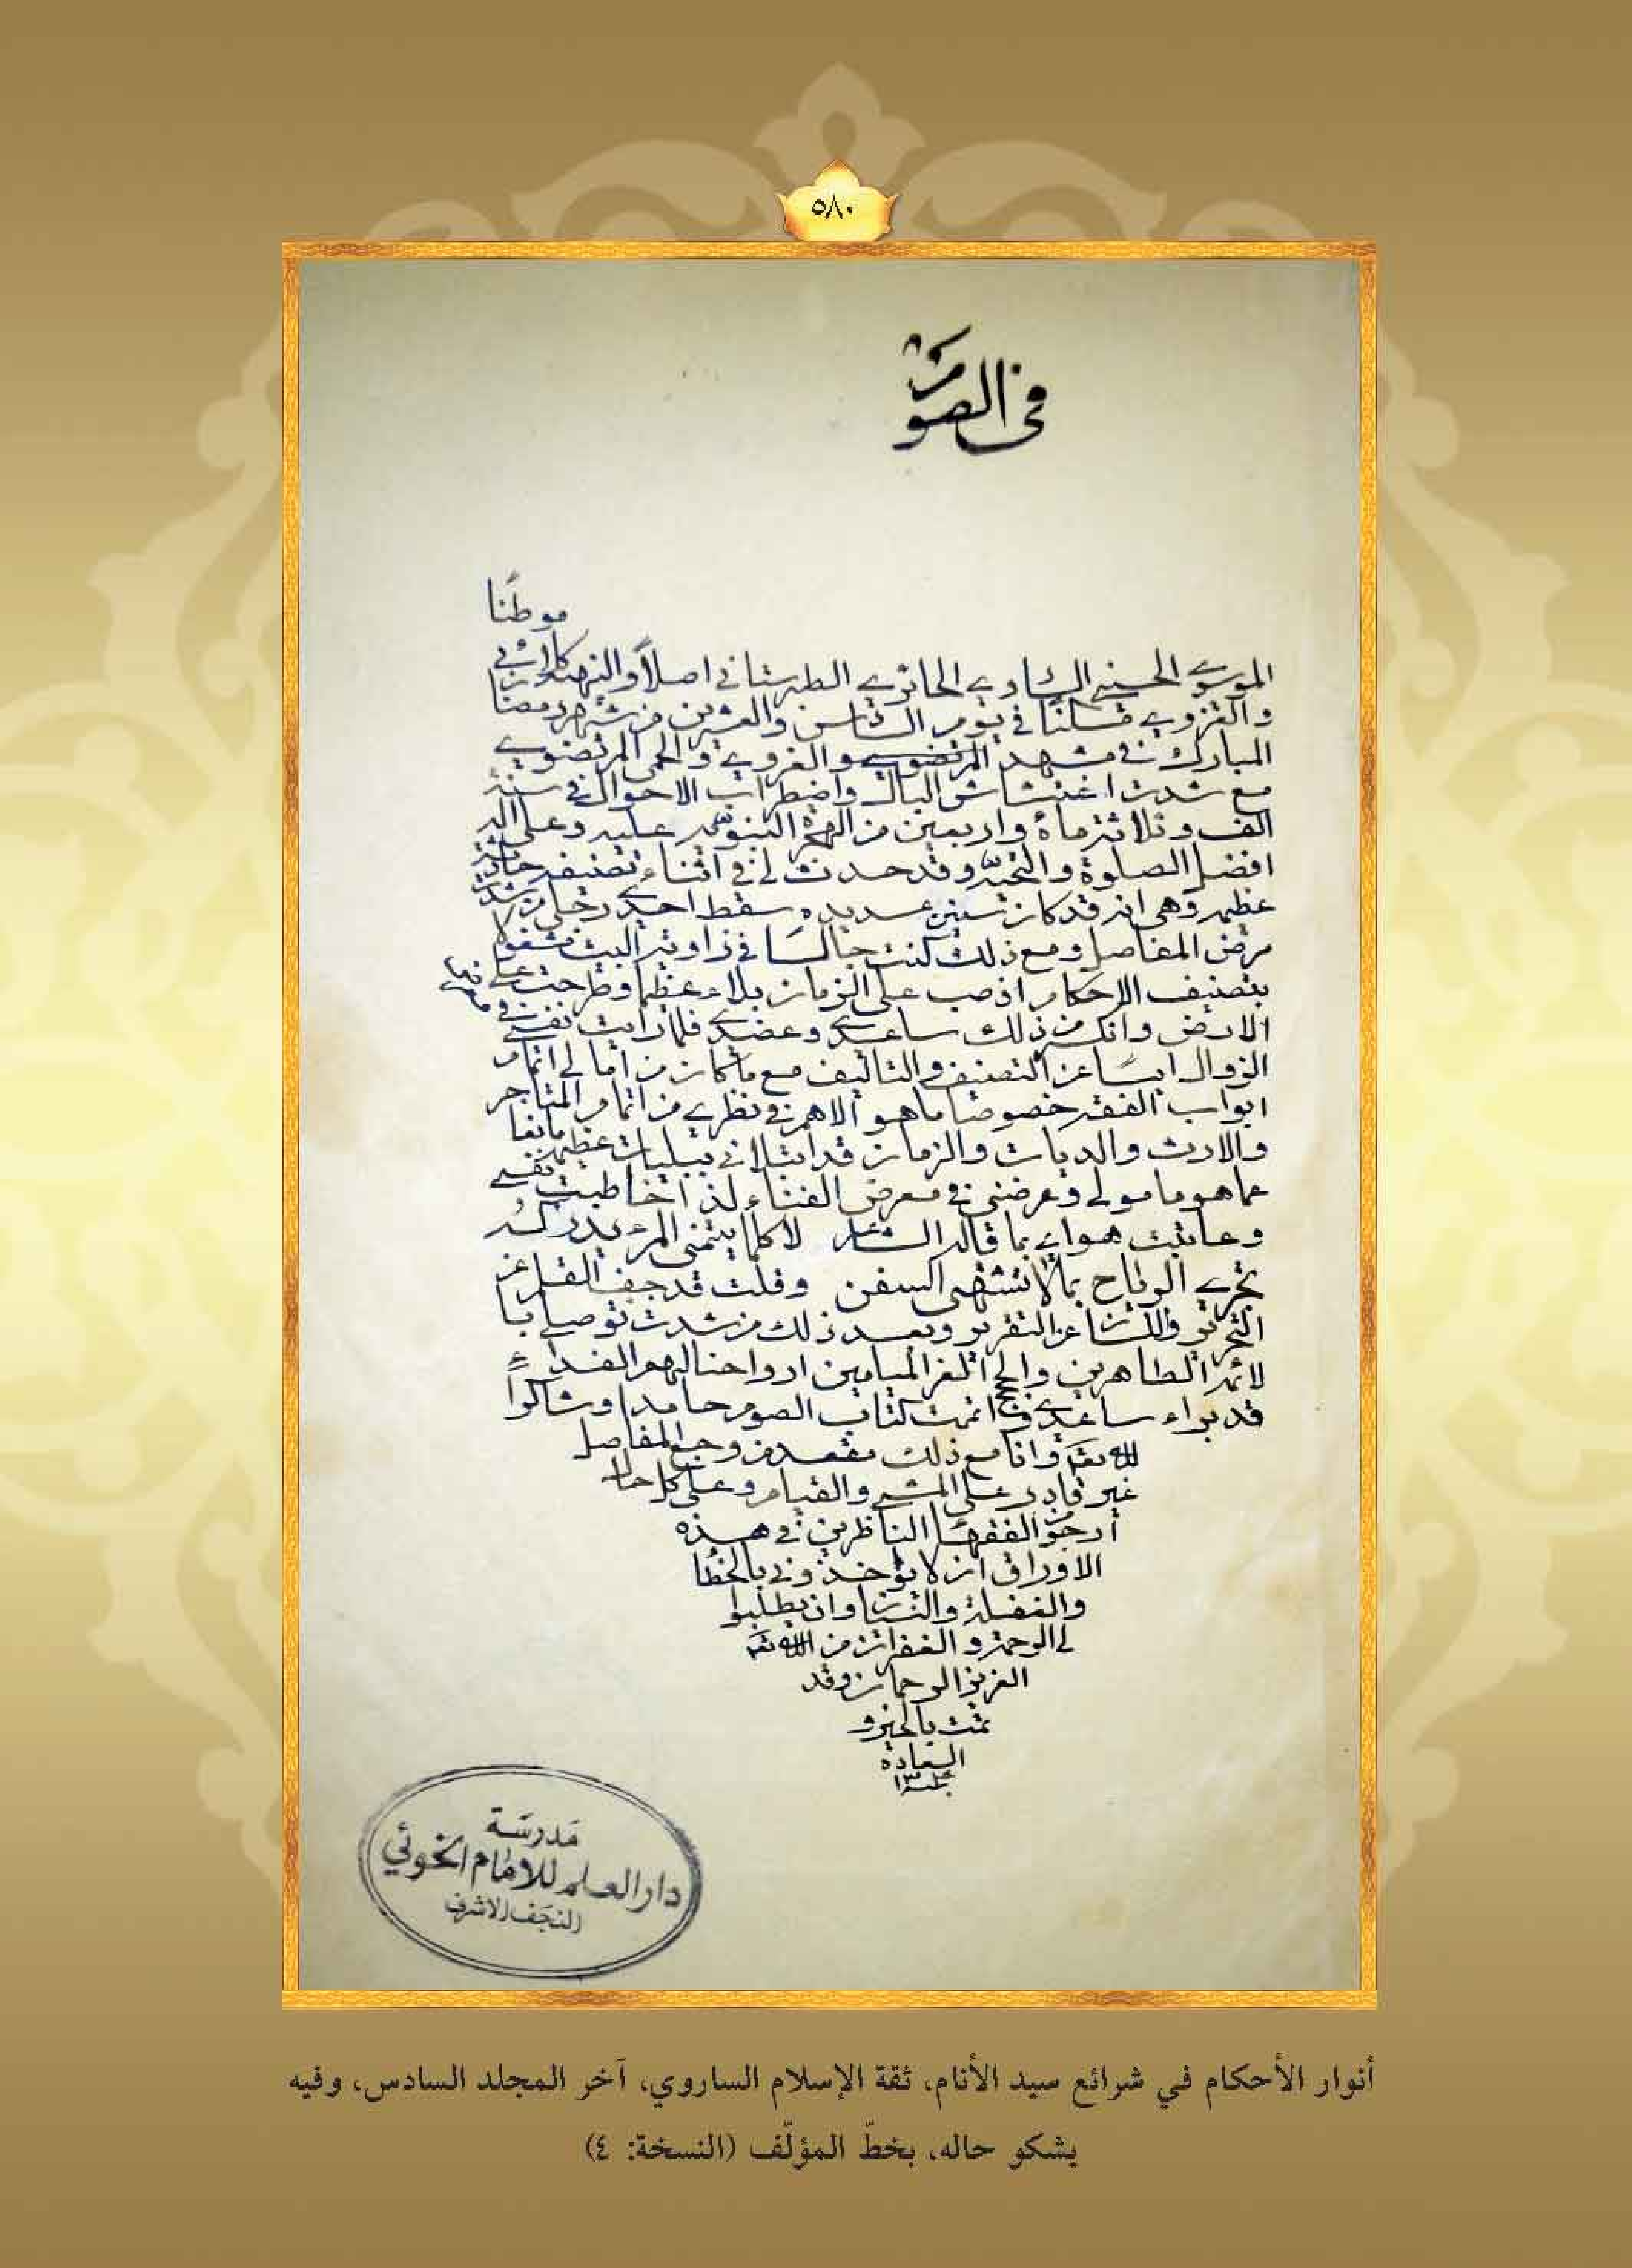 ٥٨٠
في الصوم
موطنًا
الموسوي الحسيني الساروي الحائري الطبرستاني اصلاً والنهكلائي
والغروي مسكنًا في يوم الثامن والعشرين من شهر رمضان
المبارك في مشهد المرتضوي والغروي والحمى المرتضوي
مع شدت اغتشاش البال واضطراب الاحوال في سنة
الف وثلاثة مأة واربعين من الهجرة النبوية عليه وعلى آله
افضل الصلوة والتحية وقد حدث لي في اثناء تصنيفه حادثة
عظيمه وهي انه قد كان سنين عديده سقط احدى رجلي من شدت
مرض المفاصل ومع ذلك كنت جالسًا في زاوية البيت مشغولا
بتصنيف الاحكام اذ صب على الزمان بلاء عظيما وطرحت على
الارض وانكسر من ذلك ساعدي وعضدي فلما رايت نفسي في
الزوال ايسًا عن التصنيف والتاليف مع ما كان من آمالي اتمام
ابواب الفقه خصوصًا ما هو الاهم في نظري من اتمام المتاجر
والارث والديات والزمان قد ابتلاني ببليات عظيمه مانعا
عما هو مامولي وعرضني في معرض الفناء لذا خاطبت نفسي
وعاتبت هواي بما قاله الشاعر لا كلما يتمنى المرء يدركه
تجري الرياح بما لا تشتهي السفن وقلت قد جف القلم عن
التحرير واللسان عن التقرير وبعد ذلك من شدت توصلي با
لائمة الطاهرين والحجج الغر الميامين ارواحنا لهم الفداء
قد براء ساعدي واتممت كتاب الصوم حامدا وشاكرا
لله تعالى وانا مع ذلك مقعد من وجع المفاصل
غير قادر على المشي والقيام وعلى كل حال
أرجو من الفقهاء الناظرين في هذه
الاوراق ان لا يؤاخذوني بالخطا
والغفلة والنسيان وان يطلبوا
لي الرحمة والغفران من الله تعالى
العزيز الرحمان وقد
تمت بالخير و
السعادة
مَدرسَة
دار العلم للامام الخوئي
النجف الاشرف
أنوار الأحكام في شرائع سيد الأنام، ثقة الإسلام الساروي، آخر المجلد السادس، وفيه
يشكو حاله، بخطّ المؤلّف (النسخة: ٤)